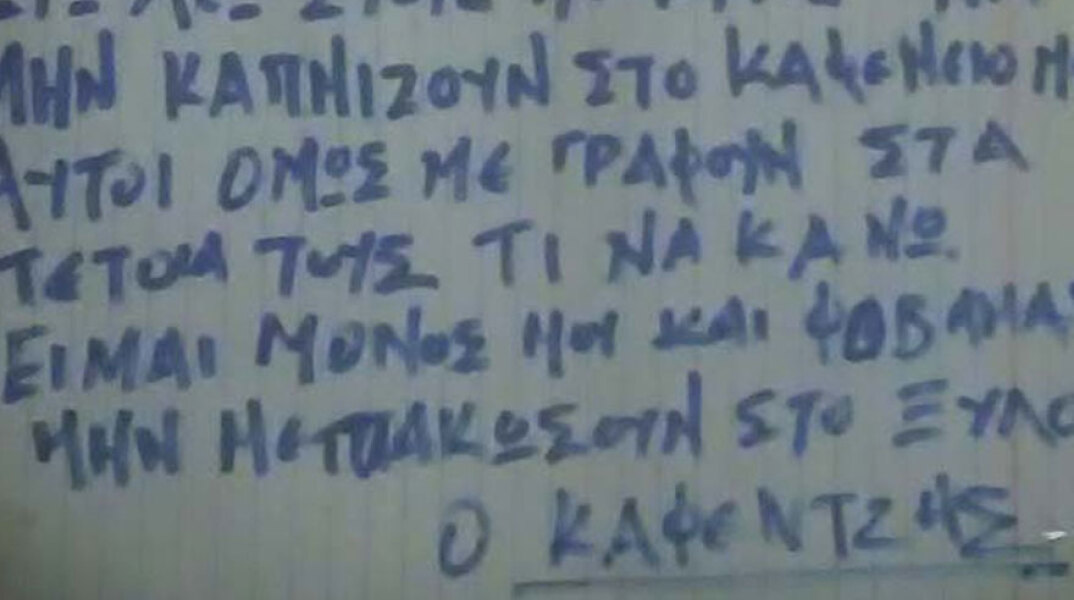 ΜΗΝ ΚΑΠΗΙΖΟΥΝ ΣΤΟ ΚΑΦΕΝΕΙΟ
ΑΥΤΟΙ ΟΜΩΣ ΜΕ ΓΡΑΦΟΥΝ ΣΤΑ
ΤΕΤΟΙΑ ΤΟΥΣ ΤΙ ΝΑ ΚΑΝΩ.
ΕΙΜΑΙ ΜΟΝΟΣ ΜΟΥ ΚΑΙ ΦΟΒΑΜΑ
ΜΗΝ ΜΕ ΠΛΑΚΩΣΟΥΝ ΣΤΟ ΞΥΛΟ
Ο ΚΑΦΕΝΤΖΗΣ